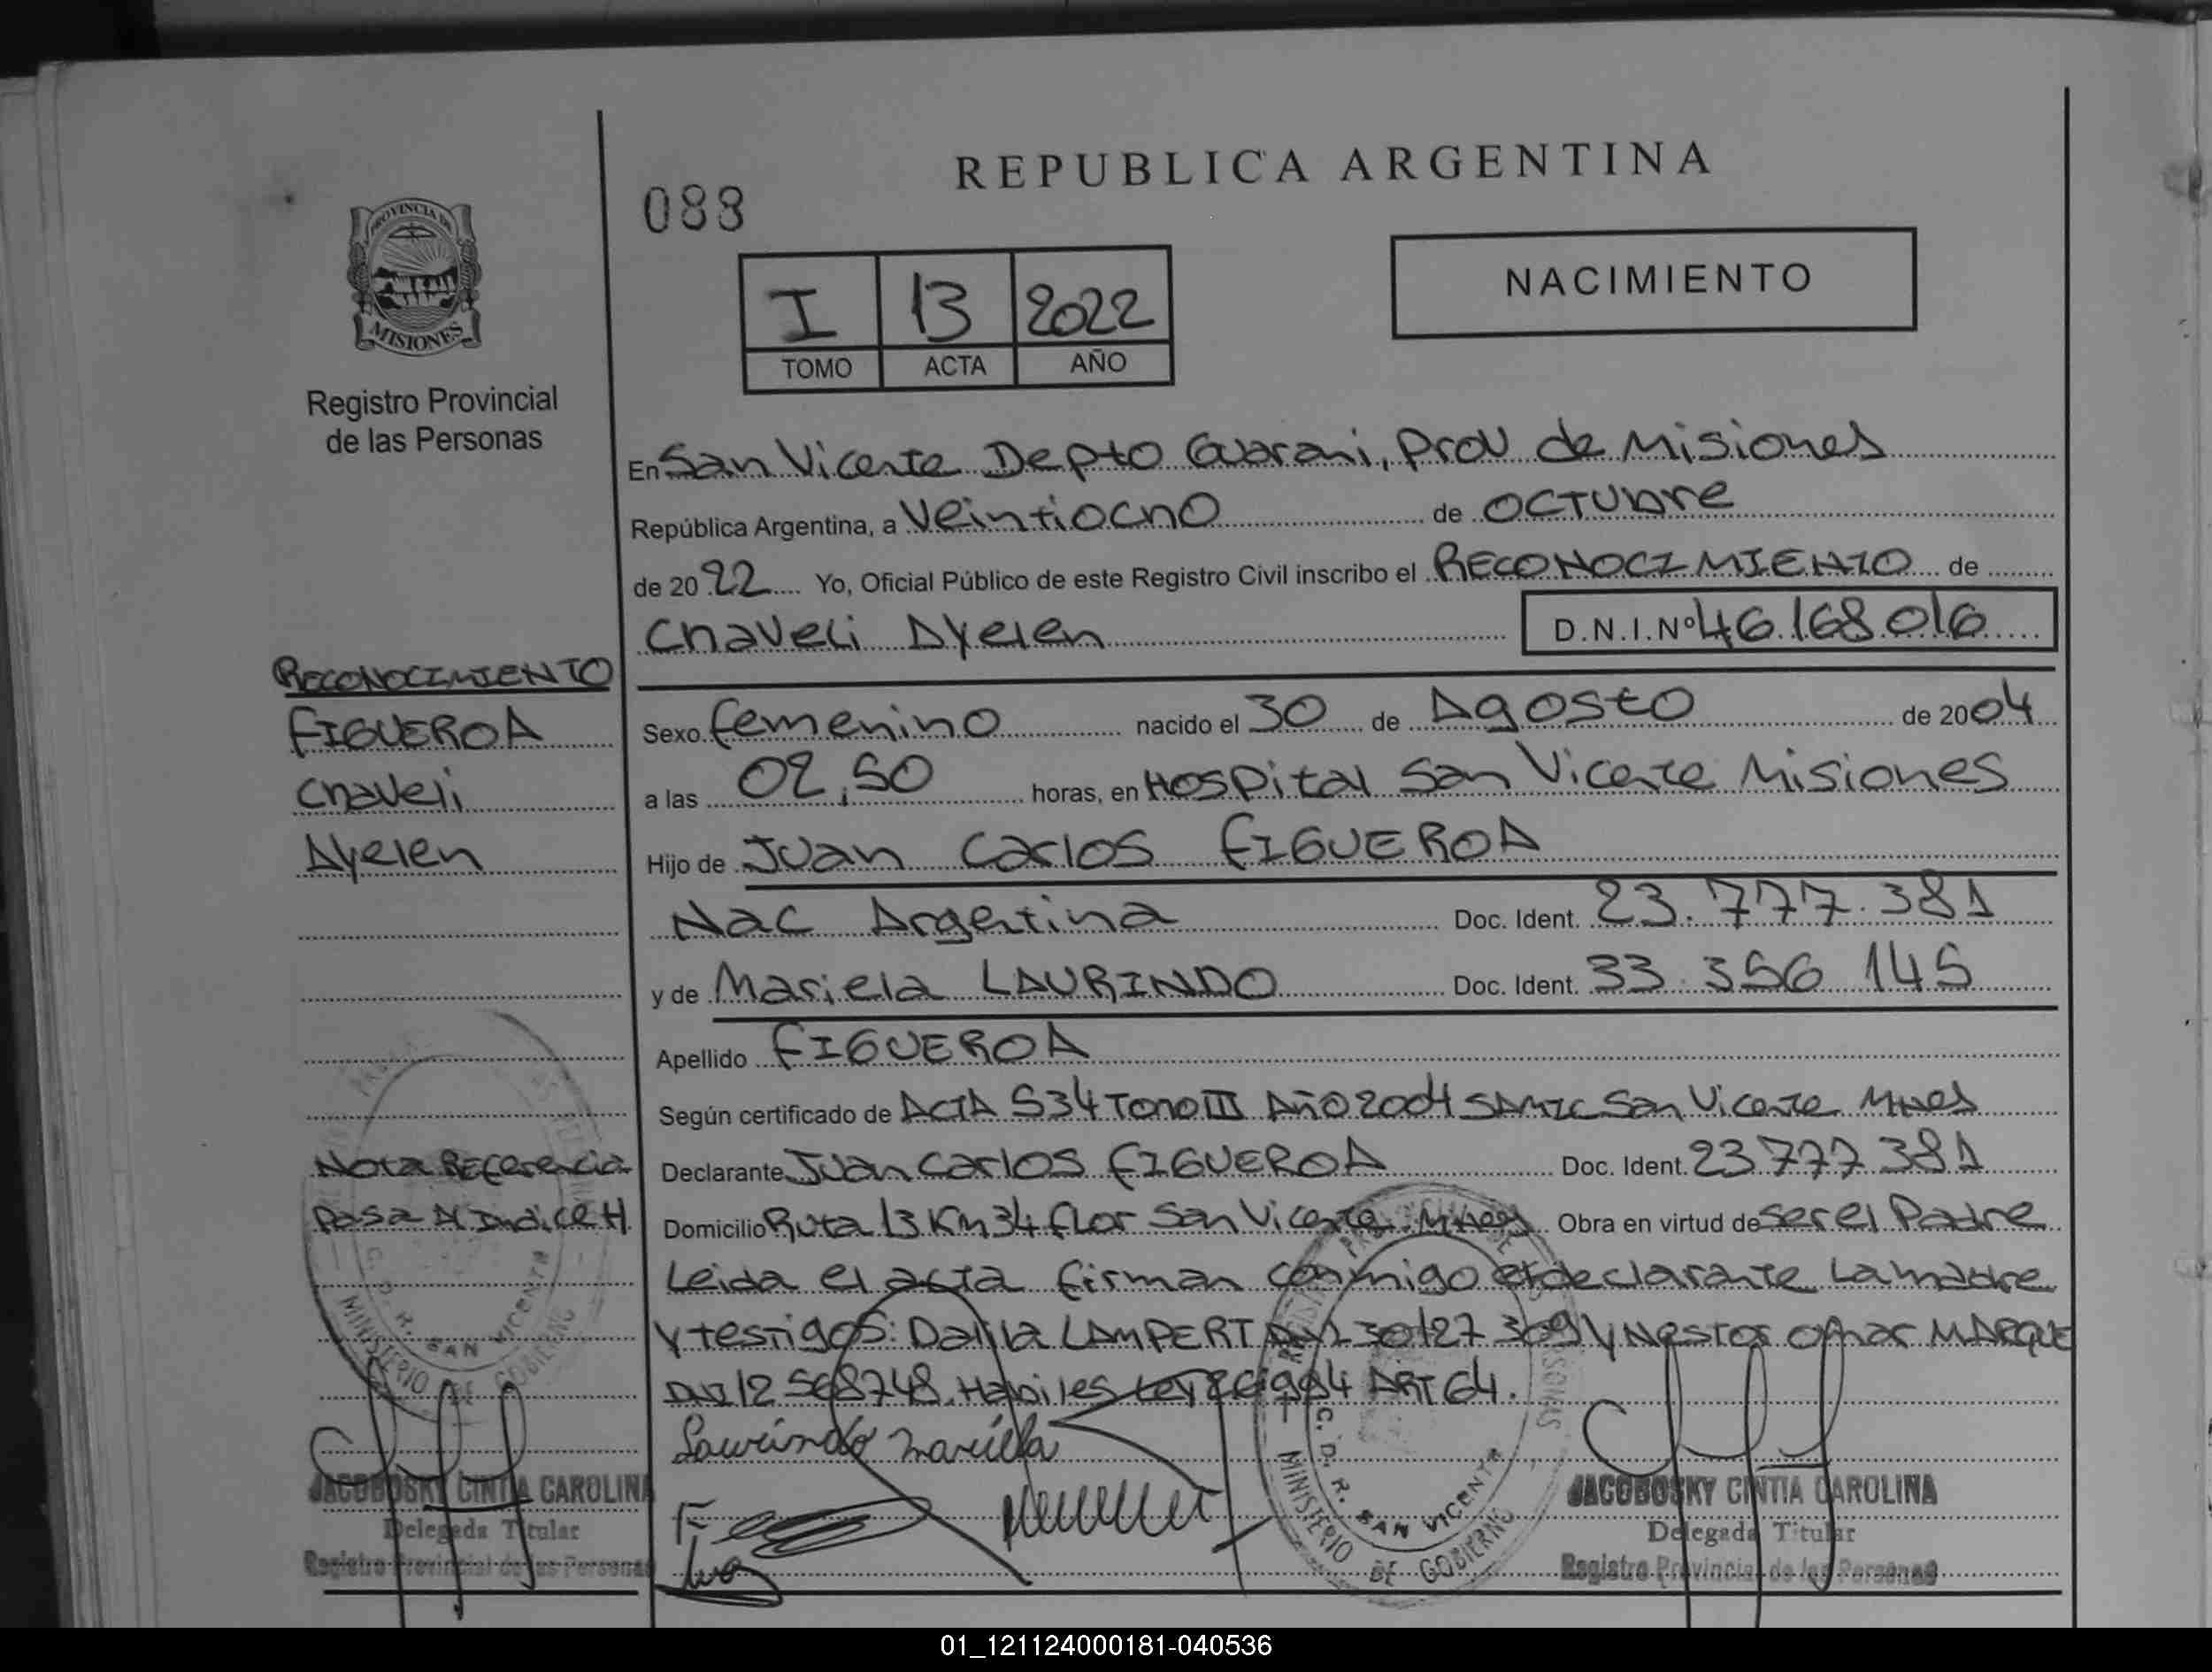 REPUBLICA ARGENTINA
088
PROVINCIA DE
MISIONES
Registro Provincial
de las Personas
I 13 2022
TOMO ACTA AÑO
NACIMIENTO
En San Vicente Depto Guarani, Prov de Misiones
República Argentina, a Veintiocho de OCTUbre
de 2022 Yo, Oficial Público de este Registro Civil inscribo el RECONOCIMIENTO de
Chaveli Ayelen D.N.I.Nº 46.168.016
RECONOCIMIENTO
FIGUEROA
Chaveli
Ayelen
Sexo femenino nacido el 30 de Agosto de 2004
a las 02,50 horas, en Hospital San Vicente Misiones
Hijo de Juan Carlos FIGUEROA
Nac Argentina Doc. Ident. 23.777.381
y de Mariela LAURINDO Doc. Ident. 33.356 145
Apellido FIGUEROA
Según certificado de ACTA 534 Tomo III Año 2004 SAMIC San Vicente Mnes
Nota Referencia
Pasa Al Indice H
Declarante Juan Carlos FIGUEROA Doc. Ident. 23 777 381
Domicilio Ruta 13 Km 34 flor San Vicente Mnes Obra en virtud de ser el Padre
Leida el acta firman conmigo el declarante La madre
y testigos: Dalila LAMPERT DNI 30127 369 y Nestor Omar MARQUE
DNI 12 568748. Habiles Ley 26994 ART 64.
Laurindo Mariela
C. D. R. SAN VICENTE
MINISTERIO DE GOBIERNO
C. D. R. SAN VICENTE
MINISTERIO DE GOBIERNO
JACOBOSKY CINTIA CAROLINA
Delegada Titular
Registro Provincial de las Personas
JACOBOSKY CINTIA CAROLINA
Delegada Titular
Registro Provincial de las Personas
01_121124000181-040536